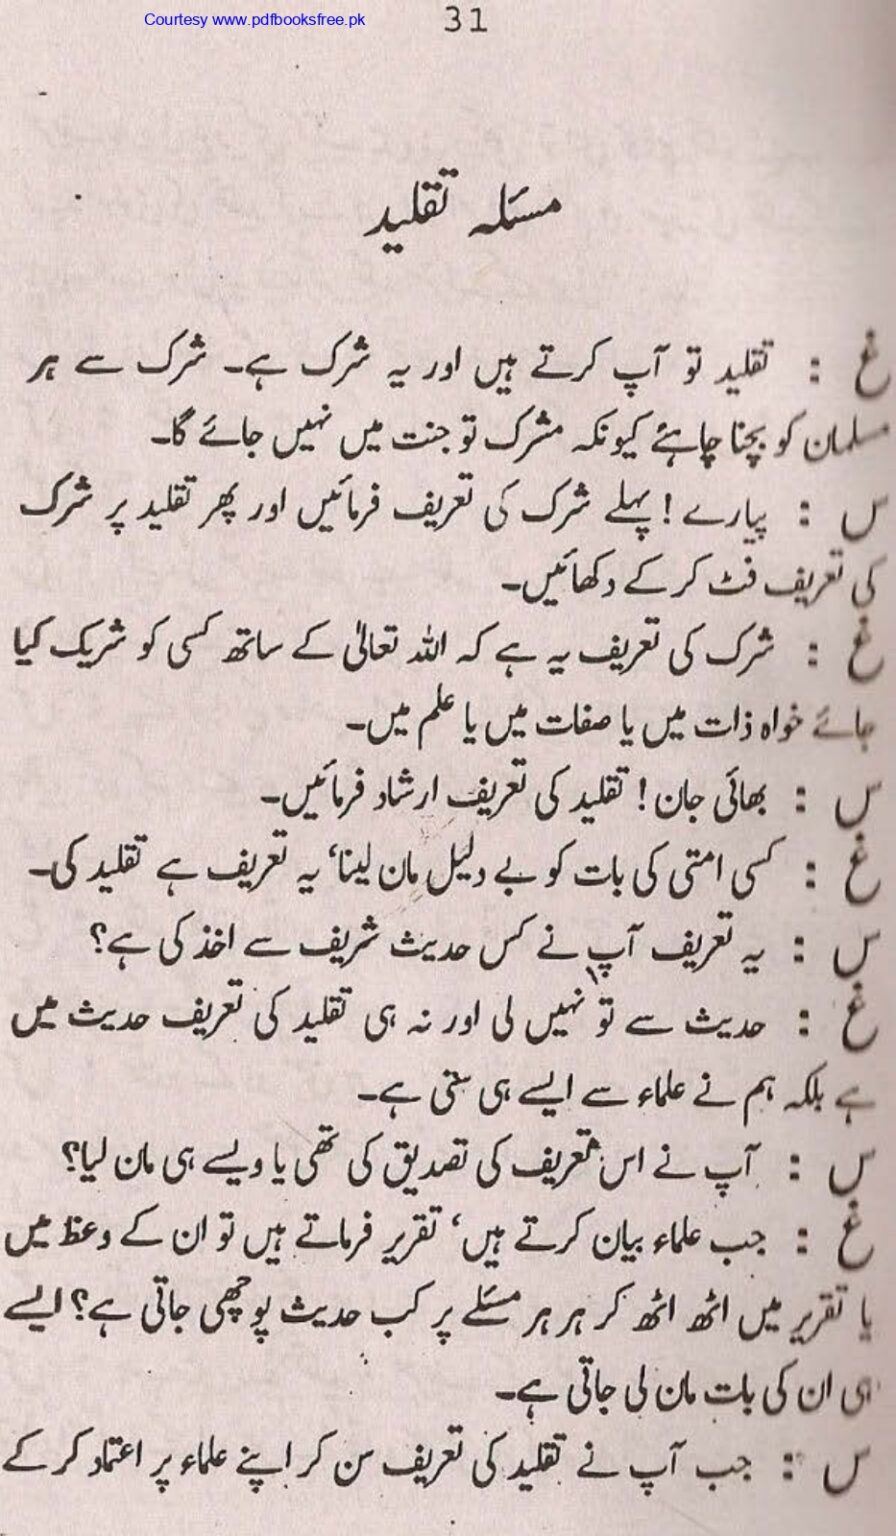 Courtesy www.pdfbooksfree.pk
31
مسئلہ تقلید
غ : تقلید تو آپ کرتے ہیں اور یہ شرک ہے۔ شرک سے ہر
مسلمان کو بچنا چاہئے کیونکہ مشرک تو جنت میں نہیں جائے گا۔
س : پیارے ! پہلے شرک کی تعریف فرمائیں اور پھر تقلید پر شرک
کی تعریف فٹ کر کے دکھائیں۔
غ : شرک کی تعریف یہ ہے کہ اللہ تعالیٰ کے ساتھ کسی کو شریک کیا
جائے خواہ ذات میں یا صفات میں یا علم میں۔
س : بھائی جان ! تقلید کی تعریف ارشاد فرمائیں۔
غ : کسی امتی کی بات کو بے دلیل مان لینا‘ یہ تعریف ہے تقلید کی۔
س : یہ تعریف آپ نے کس حدیث شریف سے اخذ کی ہے؟
غ : حدیث سے تو نہیں لی اور نہ ہی تقلید کی تعریف حدیث میں
ہے بلکہ ہم نے علماء سے ایسے ہی سنی ہے۔
س : آپ نے اس تعریف کی تصدیق کی تھی یا ویسے ہی مان لیا؟
غ : جب علماء بیان کرتے ہیں‘ تقریر فرماتے ہیں تو ان کے وعظ میں
یا تقریر میں اٹھ اٹھ کر ہر ہر مسئلے پر کب حدیث پوچھی جاتی ہے؟ ایسے
ہی ان کی بات مان لی جاتی ہے۔
س : جب آپ نے تقلید کی تعریف سن کر اپنے علماء پر اعتماد کر کے